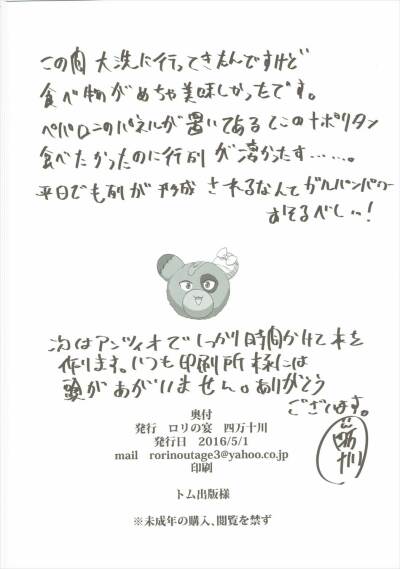 この間 大洗に行ってきたんですけど
食べ物がめちゃ美味しかったです。
ペパロニのパネルが置いてあるとこのナポリタン
食べたかったのに行列が凄かったす……。
平日でも列が形成されるなんてガルパンパワー
おそるべし…!
次はアンツィオでしっかり時間かけて本を
作ります。いつも印刷所様には
頭があがりません。ありがとう
ございます。
四万十川
奥付
発行 ロリの宴 四万十川
発行日 2016/5/1
mail rorinoutage3@yahoo.co.jp
印刷
トム出版様
※未成年の購入、閲覧を禁ず